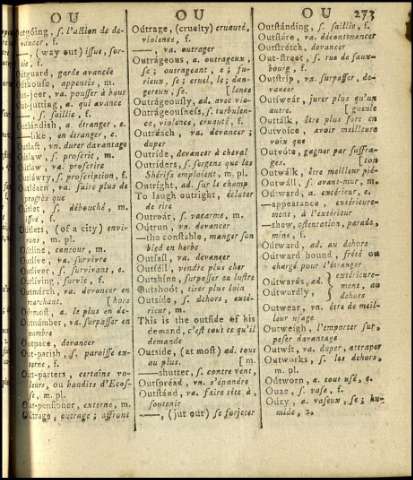 OU OU OU 273
ſ. l'action de de-
vancer, f.
— (way out) iſſue, ſor-
tie, f.
garde avancée
appentis, m.
va. pouſſer à bout
a. qui avance
— ſ. ſaillie, f.
a. étranger, e.
-like, en étranger, e.
vn. durer davantage
Outlaw, ſ. proſcrit, m.
Outlaw, va. proſcrire
Outlawry, ſ. proſcription, f.
va. faire plus de
progrès que
Outlet, ſ. débouché, m.
f.
(of a city) envi-
rons, m. pl.
Outline, contour, m.
Outlive, va. ſurvivre
Outliver, ſ. ſurvivant, e.
Outliving, ſurvie, f.
va. devancer en
marchant. [hors
a. le plus en de-
Outnumber, va. ſurpaſſer en
Outpace, devancer
Out-pariſh, ſ. paroiſſe ex-
terne, f.
Out-parters, certains vo-
leurs, ou bandits d'Ecoſ-
ſe, m. pl.
Out-penſioner, externe, m.
Outrage, outrage; affront
Outrage, (cruelty) cruauté,
violence, f.
— va. outrager
Outrágeous, a. outrageux,
ſe; outrageant, e; fu-
rieux, ſe; cruel, le; dan-
gereux, ſe. [lence
Outrágeously, ad. avec vio-
Outrágeouſneſs, ſ. turbulen-
ce, violence, cruauté, f.
Outréach, va. devancer;
duper
Outride, devancer à cheval
Outríders, ſ. ſergens que les
Shérifs emploient, m. pl.
Outríght, ad. ſur le champ
To laugh outright, éclater
de rire
Outroár, ſ. vacarme, m.
Outrun, va. devancer
—the conſtable, manger ſon
bled en herbe
Outſail, va. devancer
Outſéll, vendre plus cher
Outſhíne, ſurpaſſer en luſtre
Outſhoót, tirer plus loin
Outſide, ſ. dehors, exté-
rieur, m.
This is the outſide of his
demand, c'eſt tout ce qu'il
demande
Outſide, (at moſt) ad. tous
au plus. [m.
——ſhutter, ſ. contre vent,
Outſpréad, va. s'épandre
Outſtánd, va. faire tête à,
ſoutenir
——, (jut out) ſe forjeter
Outſtánding, ſ. ſaillie, f.
Outſtáre, va. décontenancer
Outſtrétch, devancer
Out-ſtreet, ſ. rue de faux-
bourg, f.
Outſtrip, va. ſurpaſſer, de-
vancer
Outſwear, jurer plus qu'un
autre. [gueule
Outtálk, être plus fort en
Outvoice, avoir meilleure
voix que
Outvóte, gagner par ſuffra-
ges. [ton
Outwalk, être meilleur pié-
Outwall, ſ. avant-mur, m.
Outward, a. extérieur, e.
—appearance, extérieure-
ment, à l'extérieur
—ſhow, oſtentation, parade,
mine, f.
Outward, ad. au dehors
Outward bound, frété ou
chargé pour l'étranger
Outwards, ad. } extérieure-
Outwardly, } ment, au dehors
Outwear, vn. être de meil-
leur uſage
Outweigh, l'emporter ſur,
peſer davantage
Outwít, va. duper, attraper
Outworks, ſ. les dehors,
m. pl.
Outworn, a. tout uſé, e.
Ouze, ſ. vaſe, f.
Ouzy, a. vaſeux, ſe; hu-
mide, 2.